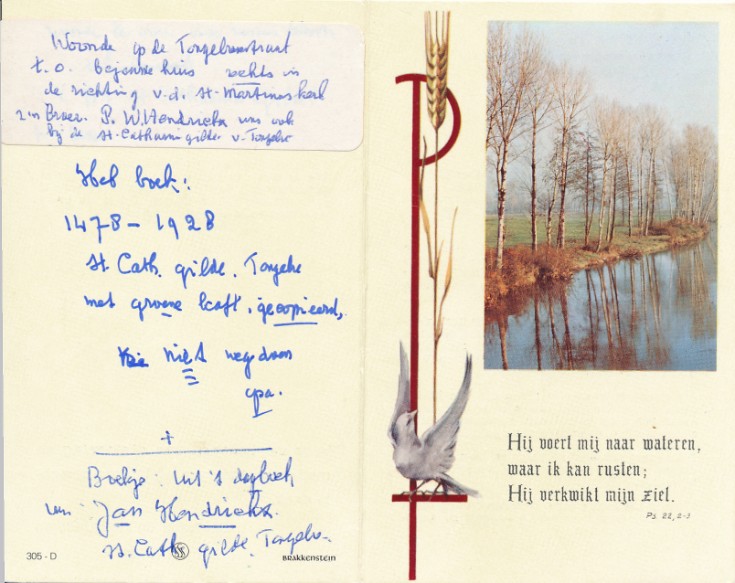 Woonde op de Tongelresestraat
t.o. Bejaardenhuis rechts in
de richting v.d. St-Martinuskerk
z'n Broer P.W. Hendrickx was ook
bij de St-Catharinagilde v. Tongelre
Het boek:
1478 - 1928
St. Cath. gilde. Tongelre
met groene kaft, gecopieerd,
niet wegdoen
opa.
+
Boekje: uit 't dagboek
van: Jan Hendrickx.
St. Cath. gilde. Tongelre.
305 - D
BRAKKENSTEIN
Hij voert mij naar wateren,
waar ik kan rusten;
Hij verkwikt mijn ziel.
Ps. 22, 2-3